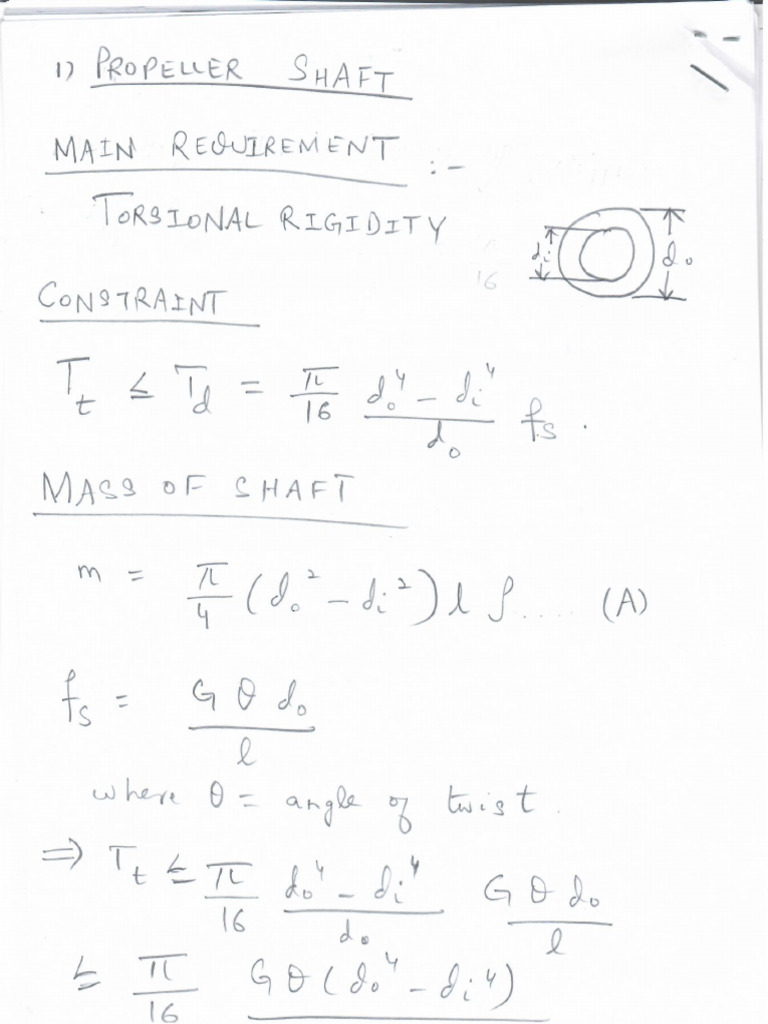 1) PROPELLER SHAFT
MAIN REQUIREMENT :-
TORSIONAL RIGIDITY
di do
16
CONSTRAINT
T_t ≤ T_d = π/16 (do⁴ - di⁴)/do fs .
MASS OF SHAFT
m = π/4 (do² - di²) l ρ..... (A)
fs = G θ do / l
where θ = angle of twist.
⇒ T_t ≤ π/16 (do⁴ - di⁴)/do G θ do / l
≤ π/16 Gθ(do⁴ - di⁴)